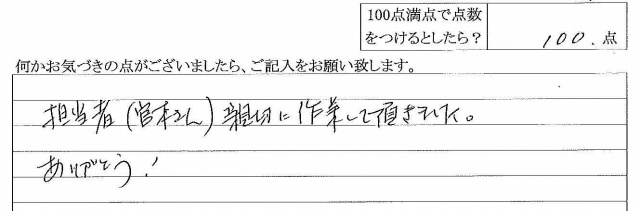 100点満点で点数
をつけるとしたら？
100.点
何かお気づきの点がございましたら、ご記入をお願い致します。
担当者(宮本さん)親切に作業して頂きました。
ありがとう！